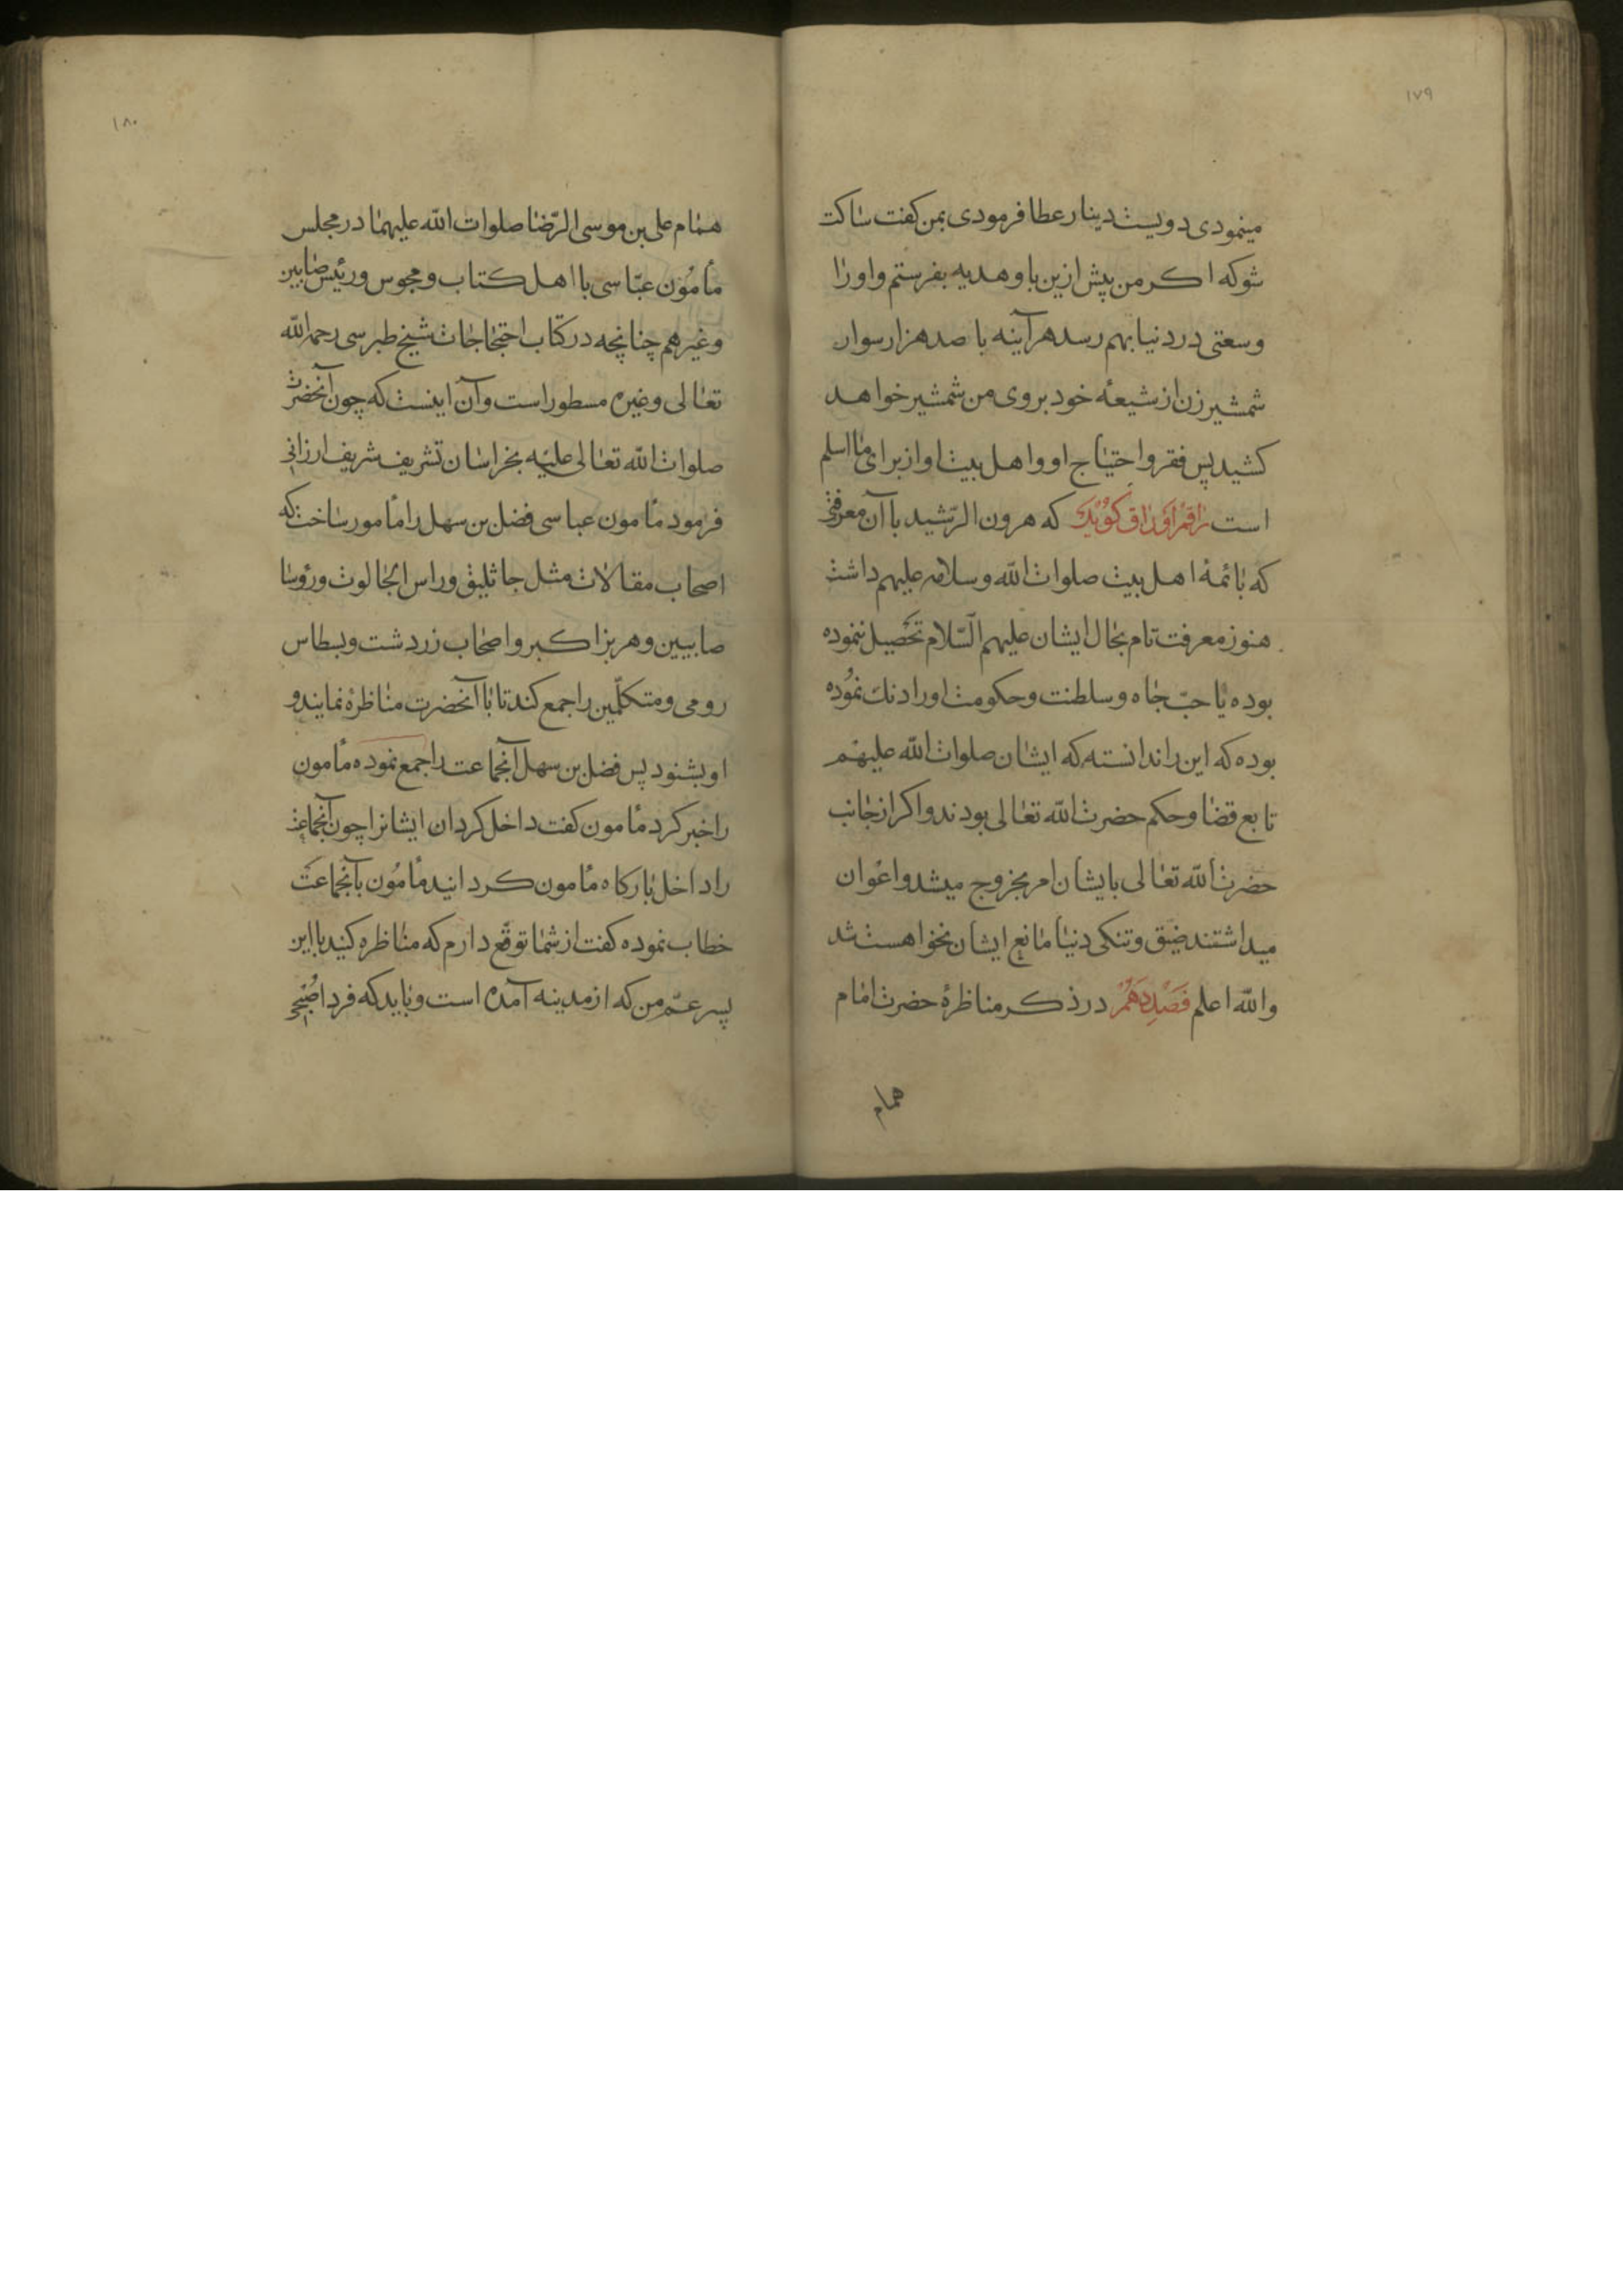 ١٧٩
مینمودی دویست دینار عطا فرمودی بمن کفت ساکت
شو که اکر من پیش ازین باو هدیه بفرستم و اورا
وسعتی در دنیا بهم رسد هرآینه با صد هزار سوار
شمشیر زن از شیعهٔ خود بروی من شمشیر خواهد
کشید پس فقر و احتیاج او و اهل بیت او از برای ما اسلم
است راقم اوراق کوید که هرون الرّشید با آن معرفتی
که بائمهٔ اهل بیت صلوات اللّه و سلامه علیهم داشت
هنوز معرفت تام بحال ایشان علیهم السّلام تحصیل ننموده
بوده یا حبّ جاه و سلطنت و حکومت او را دنك نموده
بوده که این را ندانسته که ایشان صلوات اللّه علیهم
تابع قضا و حکم حضرت اللّه تعالی بودند و اکر از جانب
حضرت اللّه تعالی بایشان امر بخروج میشد و اعوان
میداشتند ضیق و تنکی دنیا مانع ایشان نخواهست شد
و اللّه اعلم فصل دهم در ذکر مناظرهٔ حضرت امام
همام
١٨٠
همام علی بن موسی الرّضا صلوات اللّه علیهما در مجلس
مأمون عبّاسی با اهل کتاب و مجوس و رئیس صابین
و غیرهم چنانچه در کتاب احتجاجات شیخ طبرسی رحمه اللّه
تعالی و غیره مسطور است و آن اینست که چون آنحضرت
صلوات اللّه تعالی علیه بخراسان تشریف شریف ارزانی
فرمود مأمون عباسی فضل بن سهل را مأمور ساخت که
اصحاب مقالات مثل جاثلیق و راس الجالوت و رؤسا
صابیین و هربز اکبر و اصحاب زردشت و بسطاس
رومی و متکلّمین را جمع کند تا با آنحضرت مناظره نمایند و
او بشنود پس فضل بن سهل آنجماعت را جمع نموده مأمون
را خبر کرد مأمون کفت داخل کردان ایشانرا چون آنجماعت
را داخل بارکاه مأمون کردانید مأمون بآنجماعت
خطاب نموده کفت از شما توقّع دارم که مناظره کنید با این
پسر عمّ من که از مدینه آمده است و باید که فردا صُبحی